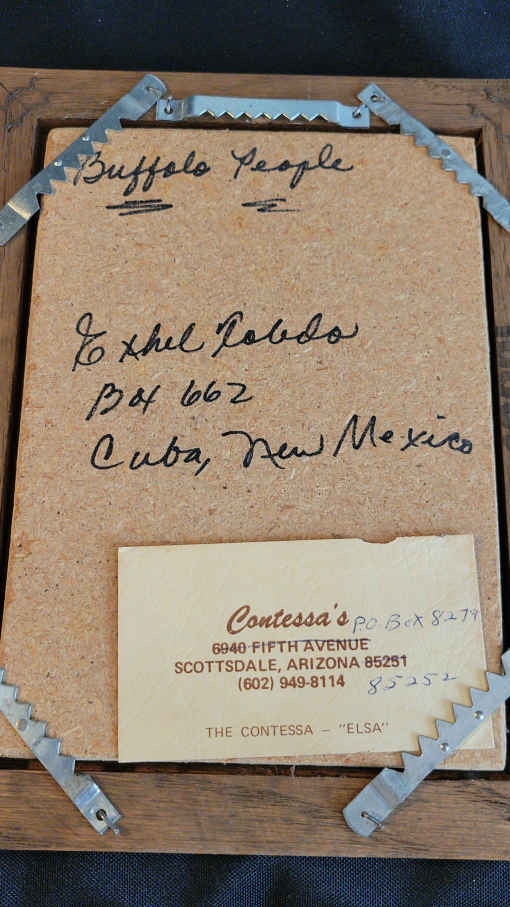 Buffalo People
Ethel Toledo
Box 662
Cuba, New Mexico
Contessa's PO Box 8279
6940 FIFTH AVENUE
SCOTTSDALE, ARIZONA 85251
(602) 949-8114 85252
THE CONTESSA – "ELSA"